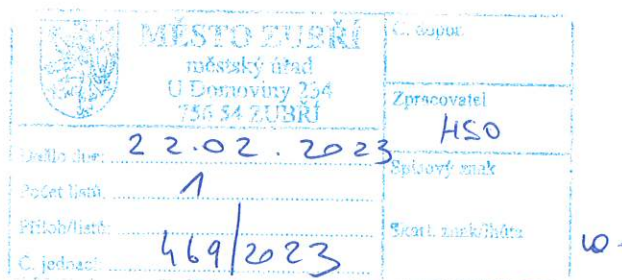 MĚSTO ZUBŘÍ
městský úřad
U Domoviny 234
756 54 ZUBŘÍ
Č. dopor.
Zpracovatel
HSO
Došlo dne: 22.02.2023
Spisový znak
Počet listů: 1
Příloh/listů:
Skart. znak/lhůta
Č. jednací: 469/2023